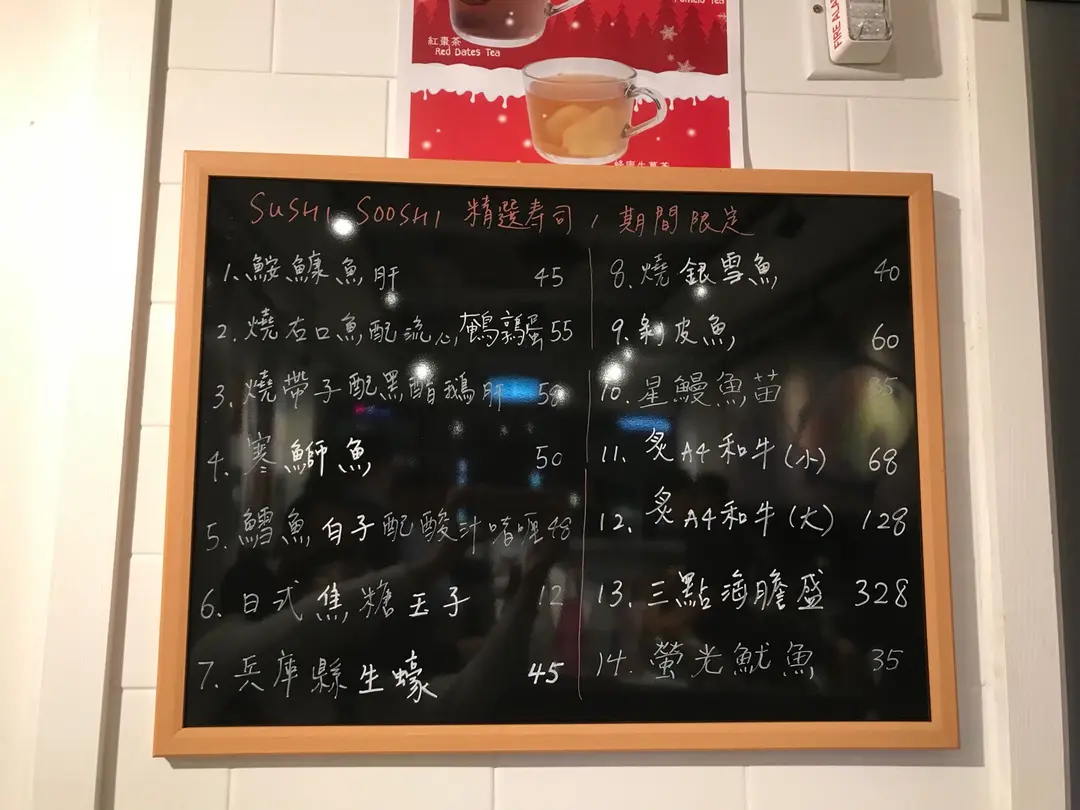 紅棗茶
Red Dates Tea
Tea
FIRE ALA
SUSHI SOOSHI 精選寿司 / 期間限定
1. 鮟鱇魚肝 45
2. 燒石口魚配流心鵪鶉蛋 55
3. 燒帶子配黑醋鵝肝 58
4. 寒鰤魚 50
5. 鱈魚白子配酸汁啫喱 48
6. 日式焦糖玉子 12
7. 兵庫縣生蠔 45
8. 燒銀雪魚 40
9. 剝皮魚 60
10. 星鰻魚苗 35
11. 炙A4和牛(小) 68
12. 炙A4和牛(大) 128
13. 三點海膽盛 328
14. 螢光魷魚 35